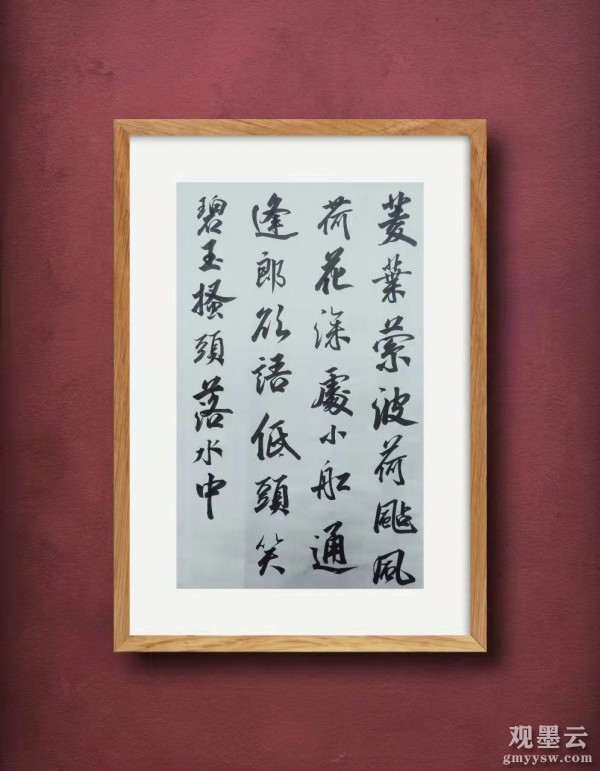 菱葉縈波荷颭風
荷花深處小船通
逢郎欲語低頭笑
碧玉搔頭落水中
观墨云
gmyysw.com